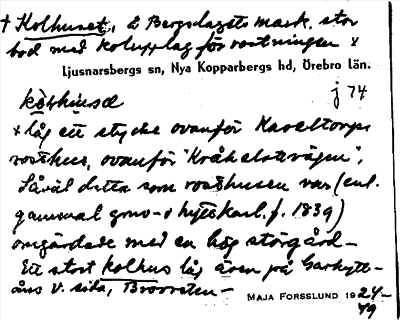 + Kolhuset, å Bergslagets mark. stor
bod med kolupplag för rostningen x
Ljusnarsbergs sn, Nya Kopparbergs hd, Örebro län.
j 74
x låg ett stycke ovanför Kaveltorps
rosthus, ovanför "Kråkelstvägen",
såväl detta som rosthusen var (enl.
gammal gruv- o hyttekarl. f. 1839)
omgärdade med en hög störgård –
Ett stort kolhus låg även på Garhytt-
åns v. sida,
MAJA FORSSLUND 1924–
49